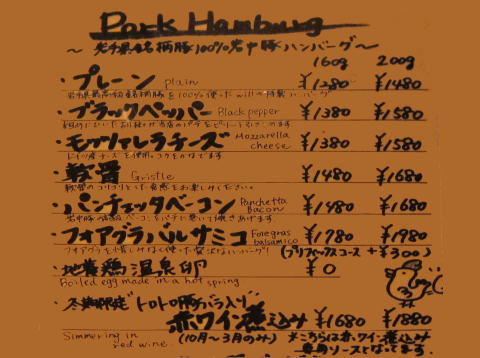 Pork Hamburg
～岩手県銘柄豚100%岩中豚ハンバーグ～
160g 200g
・プレーン plain ¥1280 ¥1480
・ブラックペッパー Black pepper ¥1380 ¥1580
・モッツァレラチーズ Mozzarella cheese ¥1380 ¥1580
・軟骨 Gristle ¥1480 ¥1680
軟骨のコリコリとした食感をお楽しみください。
・パンチェッタベーコン Panchetta Bacon ¥1480 ¥1680
・フォアグラバルサミコ Foregras balsamico ¥1780 ¥1980
(プリフィックスコース +¥300)
・地養鶏温泉卵 ¥0
Boiled egg made in a hot spring
・冬期限定 トロトロ豚バラ入り
赤ワイン煮込み ¥1680 ¥1880
Simmering in red wine.
(10月～3月のみ)
※こちらは赤ワイン煮込み
専用ソースとなってます